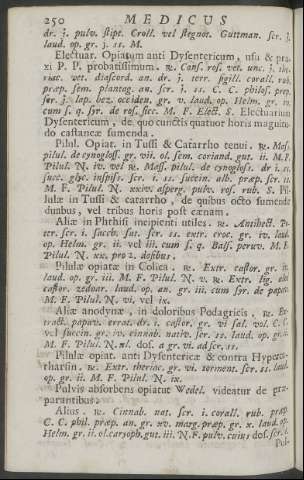 250 MEDICUS
dr. j. pulv. stipt. Croll. vel stegnot. Guttman. scr. j.
laud. op. gr. j. ss. M.
Electuar. Opiatum anti Dysentericum, usu & pra-
xi P. P. probatissimum. ℞. Cons. ros. vet. unc. j. the-
riac. vet. diascord. an. dr. j. terr. sigill. corall. rub.
præp. sem. plantag. an. scr. j. ss. C. C. philos. præp.
scr. j. lap. bez. occiden. gr. v. laud. op. Helm. gr. iv.
cum s. q. syr. de ros. sicc. M. F. Elect. S. Electuarium
Dysentericum, de quo cunctis quatuor horis magnitu-
do castaneæ sumenda.
Pilul. Opiat. in Tussi & Catarrho tenui. ℞. Mass.
pilul. de cynogloss. gr. vii. ol. sem. coriand. gut. ii. M. F.
Pilul. N. iv. vel ℞. Mass. pilul. de cynogloss. dr. i. ss.
succ. glyc. inspiss. scr. i. ss. succin. alb. præp. scr. ii.
M. F. Pilul. N. xxiv. asperg. pulv. ros. rub. S. Pi-
lulæ in Tussi & catarrho, de quibus octo sumendæ
duabus, vel tribus horis post cænam.
Aliæ in Phthisi incipienti utiles. ℞. Antihect. P-
ter. scr. i. sacch. sat. scr. ss. extr. croc. gr. iv. laud.
op. Helm. gr. ii. vel iii. cum s. q. Bals. peruv. M. F.
Pilul. N. xx. pro 2. dosibus.
Pilulæ opiatæ in Colica. ℞. Extr. castor. gr. iv.
laud. op. gr. iii. M. F. Pilul. N. v. ℞. Extr. lig.
castor. zedoar. laud. op. an. gr. iii. cum syr. de papav.
M. F. Pilul. N. vi. vel ix.
Aliæ anodynæ, in doloribus Podagricis, ℞. Ex-
tract. papav. errat. dr. i. castor. gr. vi sal. vol. C. C.
vel succin. gr. iv. cinnab. nativ. scr. ss. laud. op. gr.
M. F. Pilul. N. dos. a gr. vi. ad scr. ss.
Pilulæ opiat. anti Dysentericæ & contra Hyperca-
tharsin. ℞. Extr. theriac. gr. vi. torment. scr. ss. laud.
op. gr. ii. M. F. Pilul. N. ix.
Pulvis absorbens opiatus Wedel. videatur de præ-
parantibus.
Alius. ℞. Cinnab. nat. scr. i. corall. rub. præp.
C. C. phil. præp. an. gr. xv. marg. præp. gr. x. laud. op.
Helm. gr. ii. ol. caryoph. gut. iii. N. F. pulv. cuius dos. scr. i.
Pul-